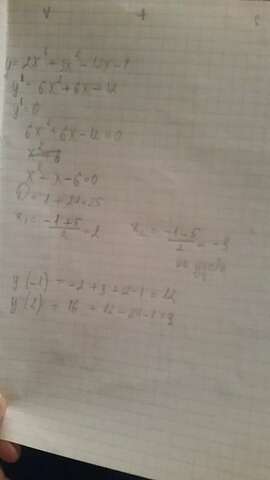 y=2x³+3x²-12x-1
y'=6x²+6x-12
y'=0
6x²+6x-12=0
x²-x-6=0
D=1+24=25
x₁=-1+5/2=2 x₂=-1-5/2=-3
y(-1)=-2+3+12-1=12
y(2)=16+12-24-1=3